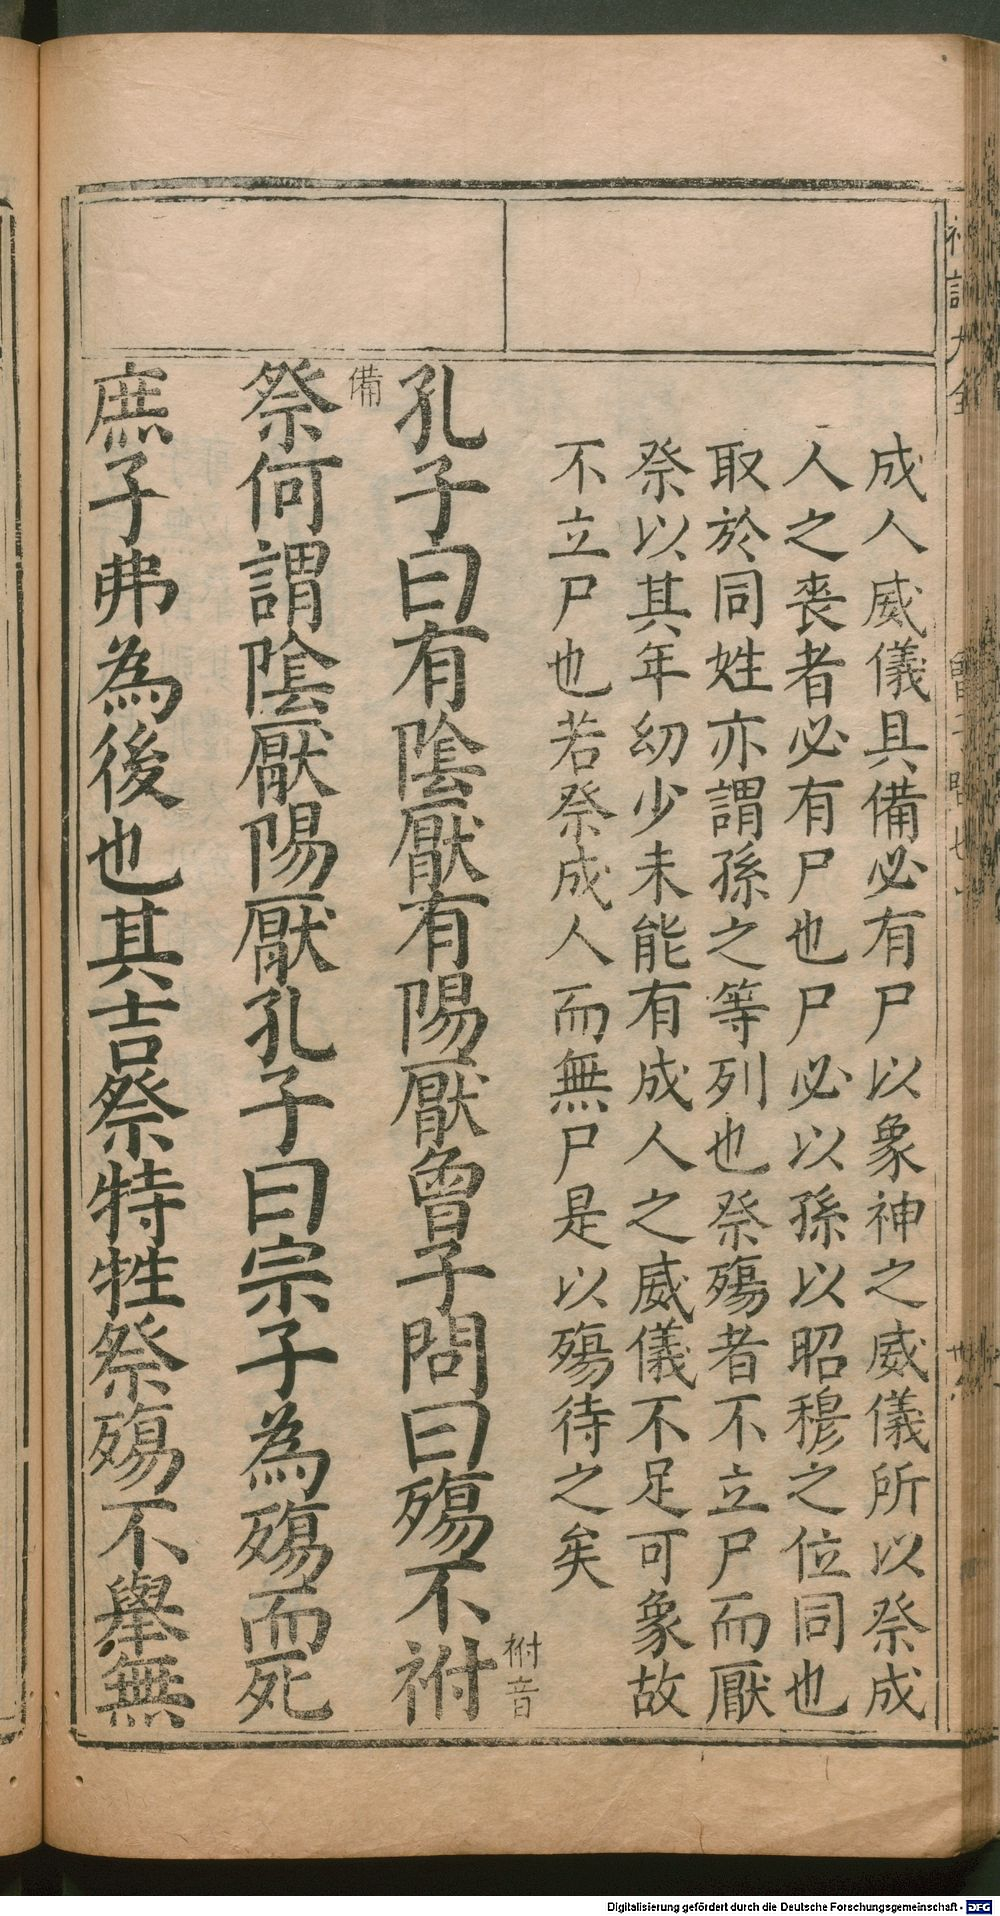 成人威儀具備必有尸以象神之威儀所以祭成
人之喪者必有尸也尸必以孫以昭穆之位同也
取於同姓亦謂孫之等列也祭殤者不立尸而厭
祭以其年幼少未能有成人之威儀不足可象故
不立尸也若祭成人而無尸是以殤待之矣
孔子曰有陰厭有陽厭曾子問曰殤不祔
祔音
備
祭何謂陰厭陽厭孔子曰宗子為殤而死
庶子弗為後也其吉祭特牲祭殤不舉無
Digitalisierung gefördert durch die Deutsche Forschungsgemeinschaft - DFG